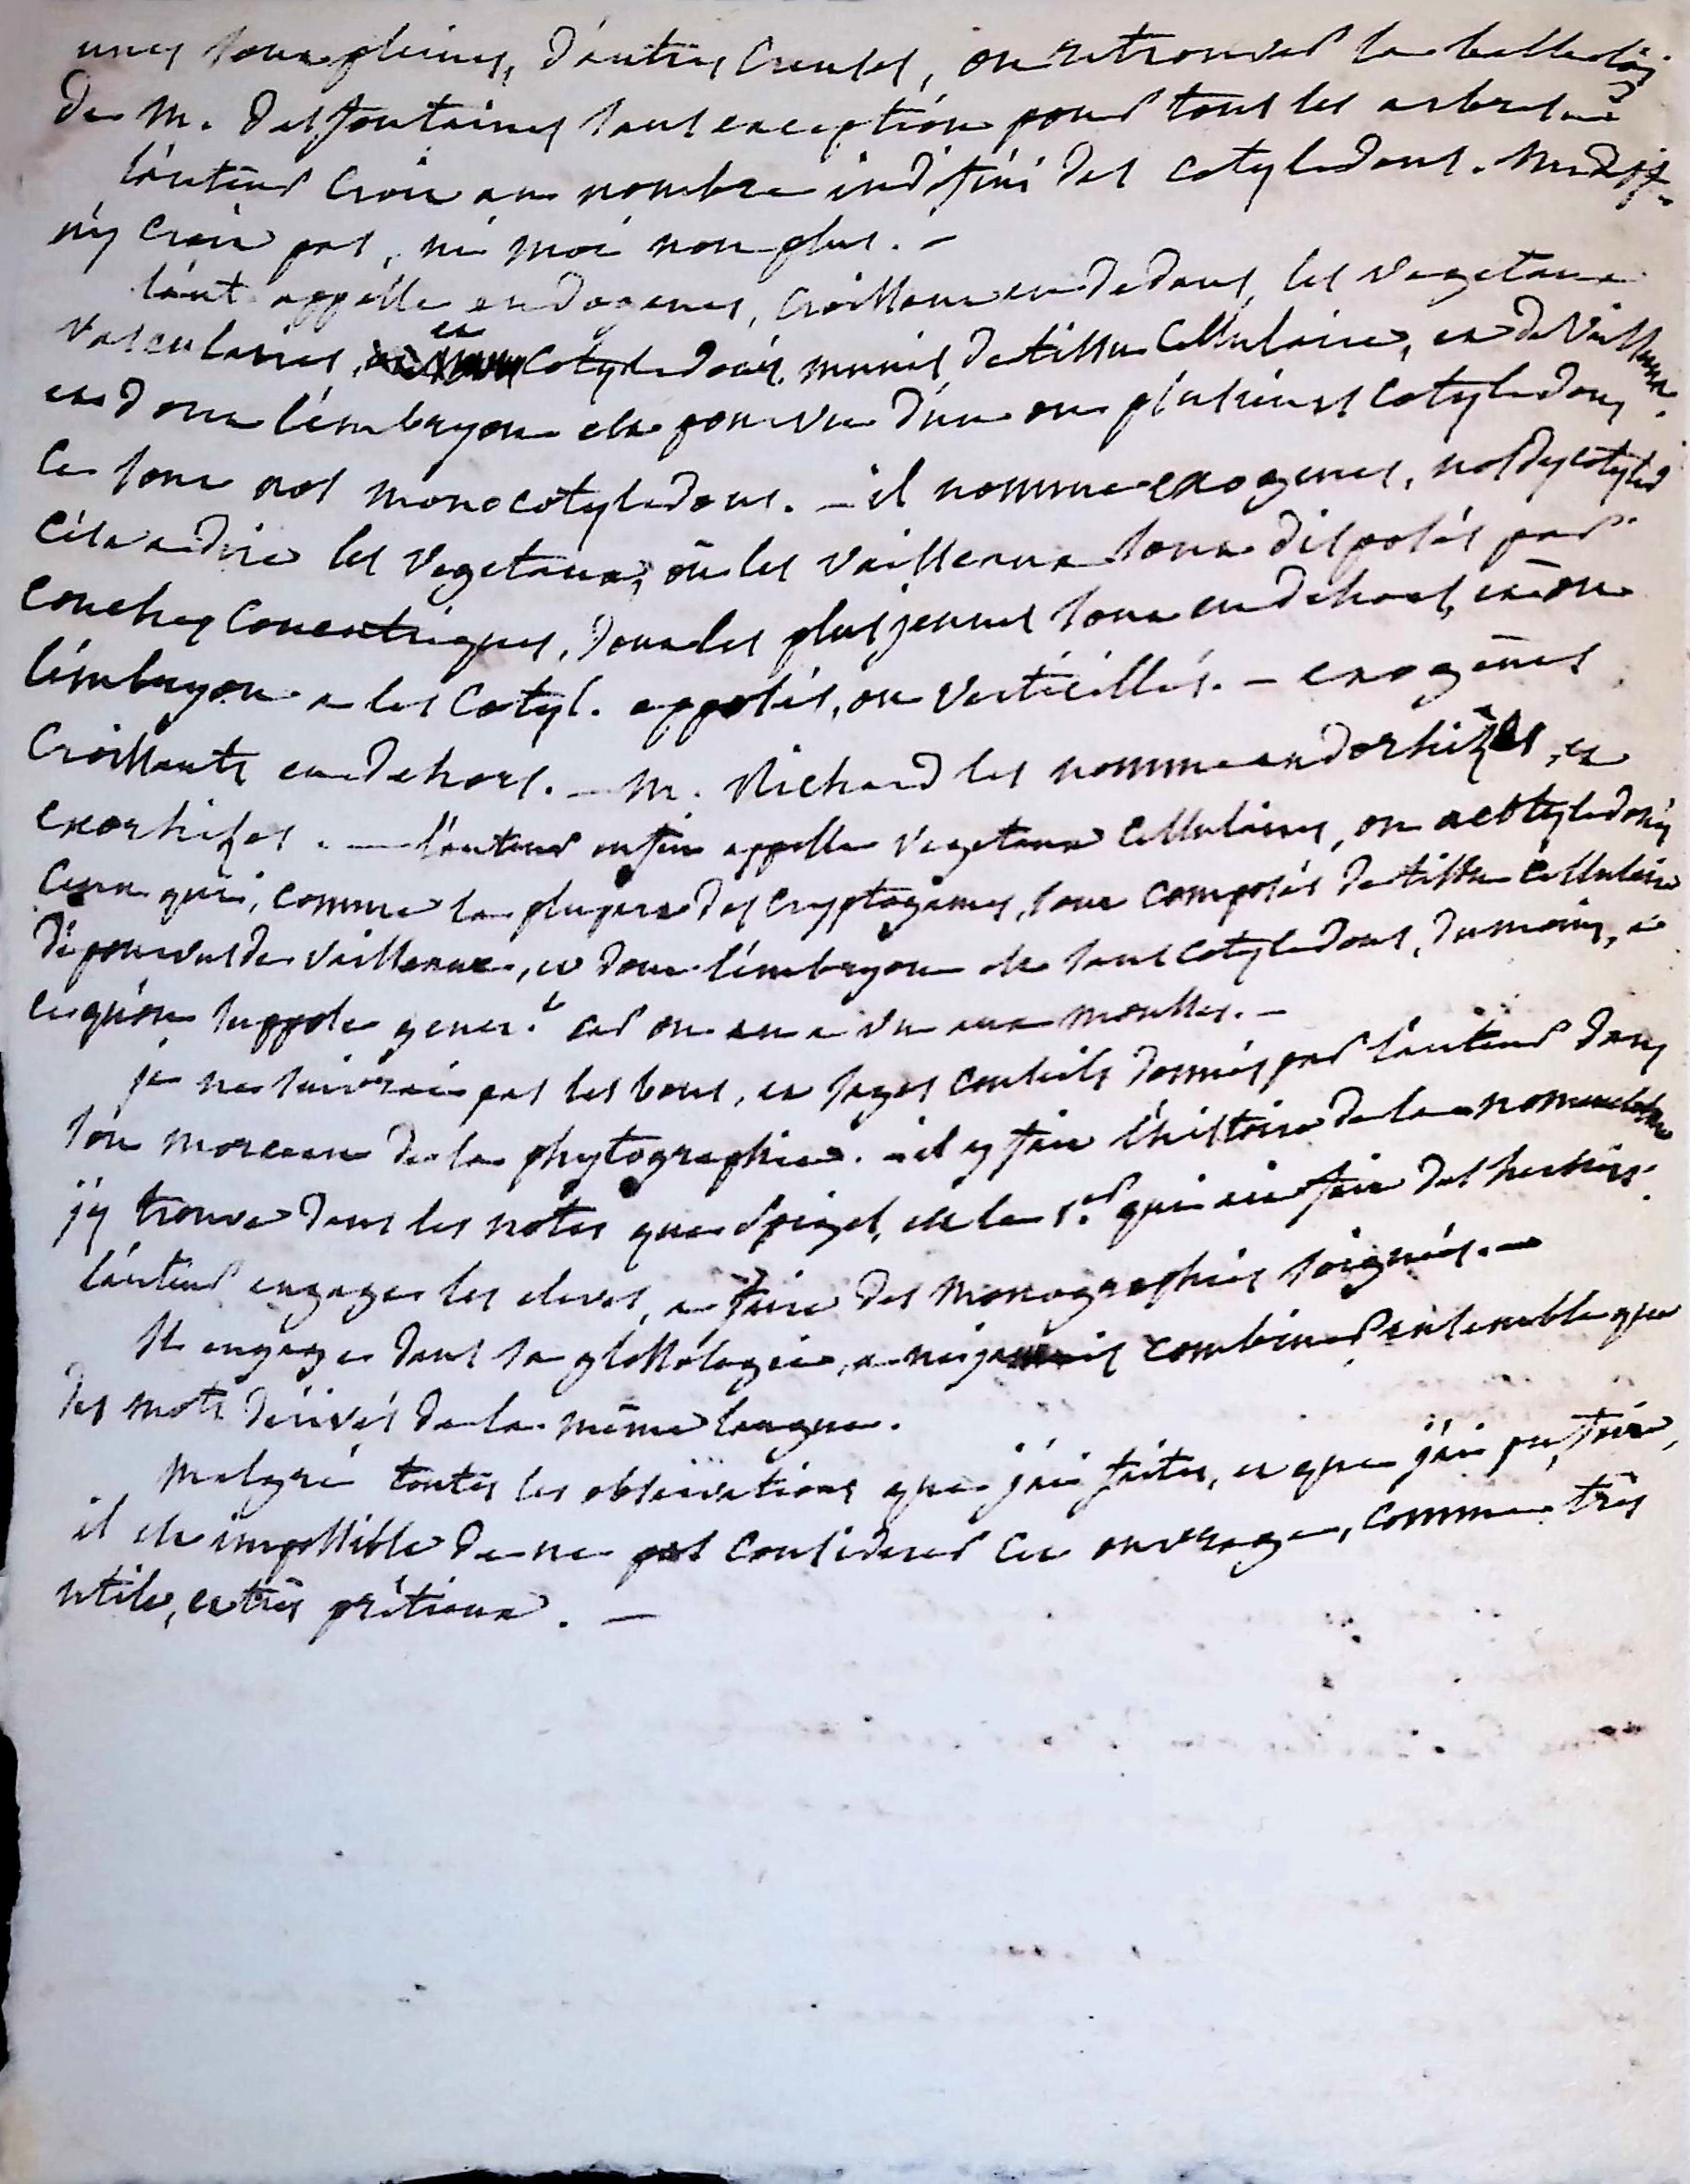 unes sont pleines, d'autres creuses, on retrouver la belle loi
de M. Desfontaines sans exception pour tous les arbres
l'auteur croit au nombre indéfini des cotyledons. Mr Desf.
n'y croit pas, ni moi non plus. —
l'aut. appelle endogenes, croissant en dedans, les vegetaux
vasculaires, et cotyledonés, munis de tissu cellulaire, et de vaisseaux.
et dont l'embryon est pourvu d'un ou plusieurs cotyledons
ce sont nos monocotyledons. — il nomme exogenes, nos dycotyled
c'est a dire les vegetaux, où les vaisseaux sont disposés par
couches concentriques, dont les plus jeunes sont en dehors, et ou
l'embryon a les cotyl. opposés, ou verticillés. — exogènes
croissants en dehors. — M. Richard les nomme endorhizes, et
exorhizes. — l'auteur enfin appelle vegetaux cellulaires, ou acotyledonés
ceux qui, comme la plupart des cryptogames, sont composés de tissu cellulaire
dépourvus de vaisseaux, et dont l'embryon est sans cotyledons, du moins, à
ce qu'on suppose gener.t car on en a vu aux mousses. —
je ne suivrai pas les bons, et sages conseils donnés par l'auteur dans
son morceau de la phytographie. — il y fait l'histoire de la nomenclature
j'y trouve dans les notes que Spigel, est le 1.er qui ait fait des herbiers.
l'auteur engage les eleves, a faire des monographies soignées. —
Il engage dans sa glossologie, a ne jamais combiner ensemble que
des mots dérivés de la même langue.
Malgré toutes les observations que j'ai faites, et que j'ai pu faire,
il est impossible de ne pas considerer cet ouvrage, comme très
utile, et très prétieux. —